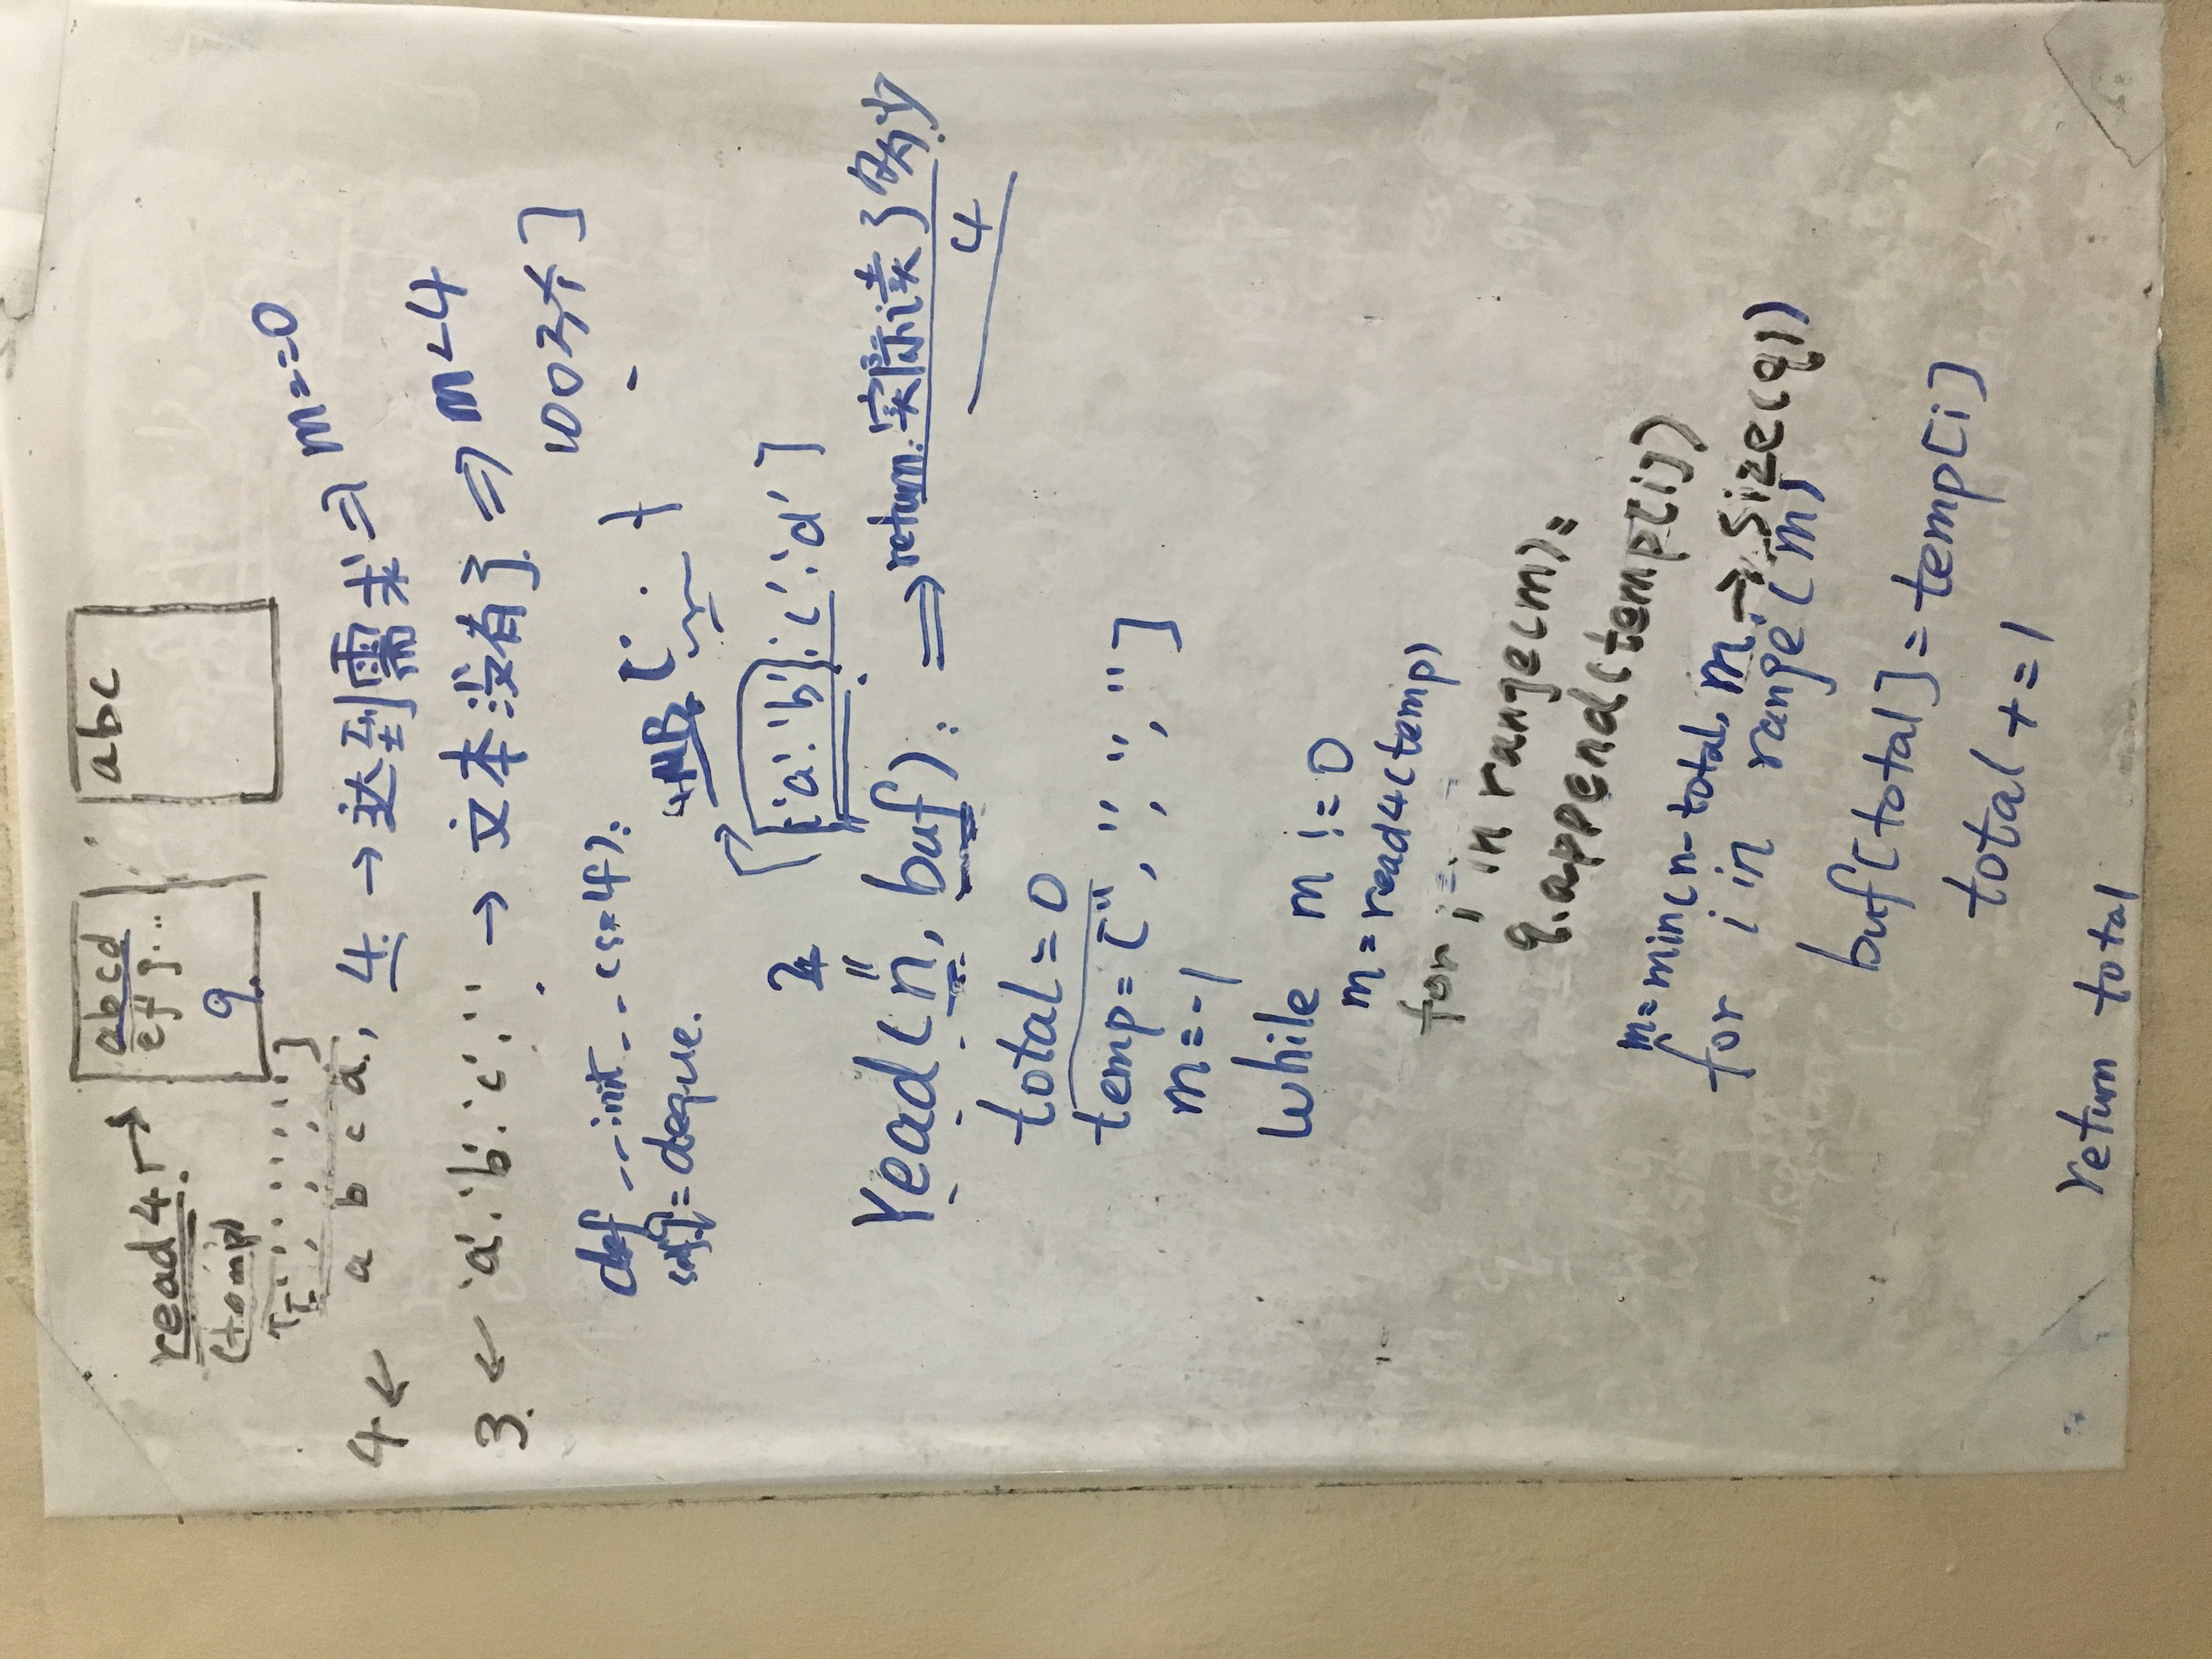 abcd
efg...
q
abc
read4
(temp)
['', '', '', '']
4 ← a b c d, 4 → 达到需求 ⇒ m==0
3 ← 'a'.'b'.'c'.'' → 文本没有了 ⇒ m<4
100多个]
def __init__(self):
self.q = deque.
4MB
['a'.'b'.'c'.'d']
read(n, buf): ⇒ return: 实际读了多少
4
total = 0
temp = ['', '', '', '']
m = -1
while m != 0
m = read4(temp)
for i in range(m):
q.append(temp[i])
m = min(n-total, m → size(q))
for i in range(m)
buf[total] = temp[i]
total += 1
return total